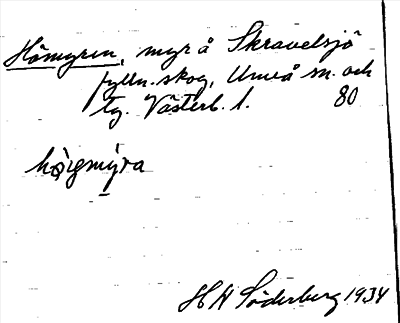 Hömyren, myr å Skravelsjö
fylln. skog, Umeå sn. och
tg. Västerb. l. 80
hö̀igmýra
H H Söderberg 1934